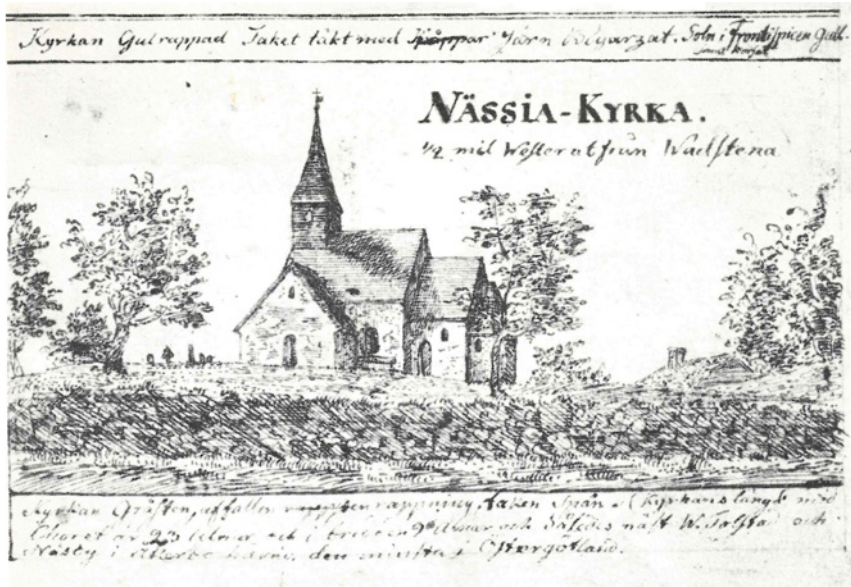 Kyrkan Gulrappad Taket täkt med Järn Soln i Frontispicen Gul.
samt Korset
NÄSSIA-KYRKA.
1/2 mil Wester ut från Wadstena
Kyrkan Gråsten, affallen rappning, taken Spån Kyrkans längd med
Choret är 23 alnar och i bredden 9 alnar och näst W. Tolsta och
Näsby i den minsta i Östergötland.